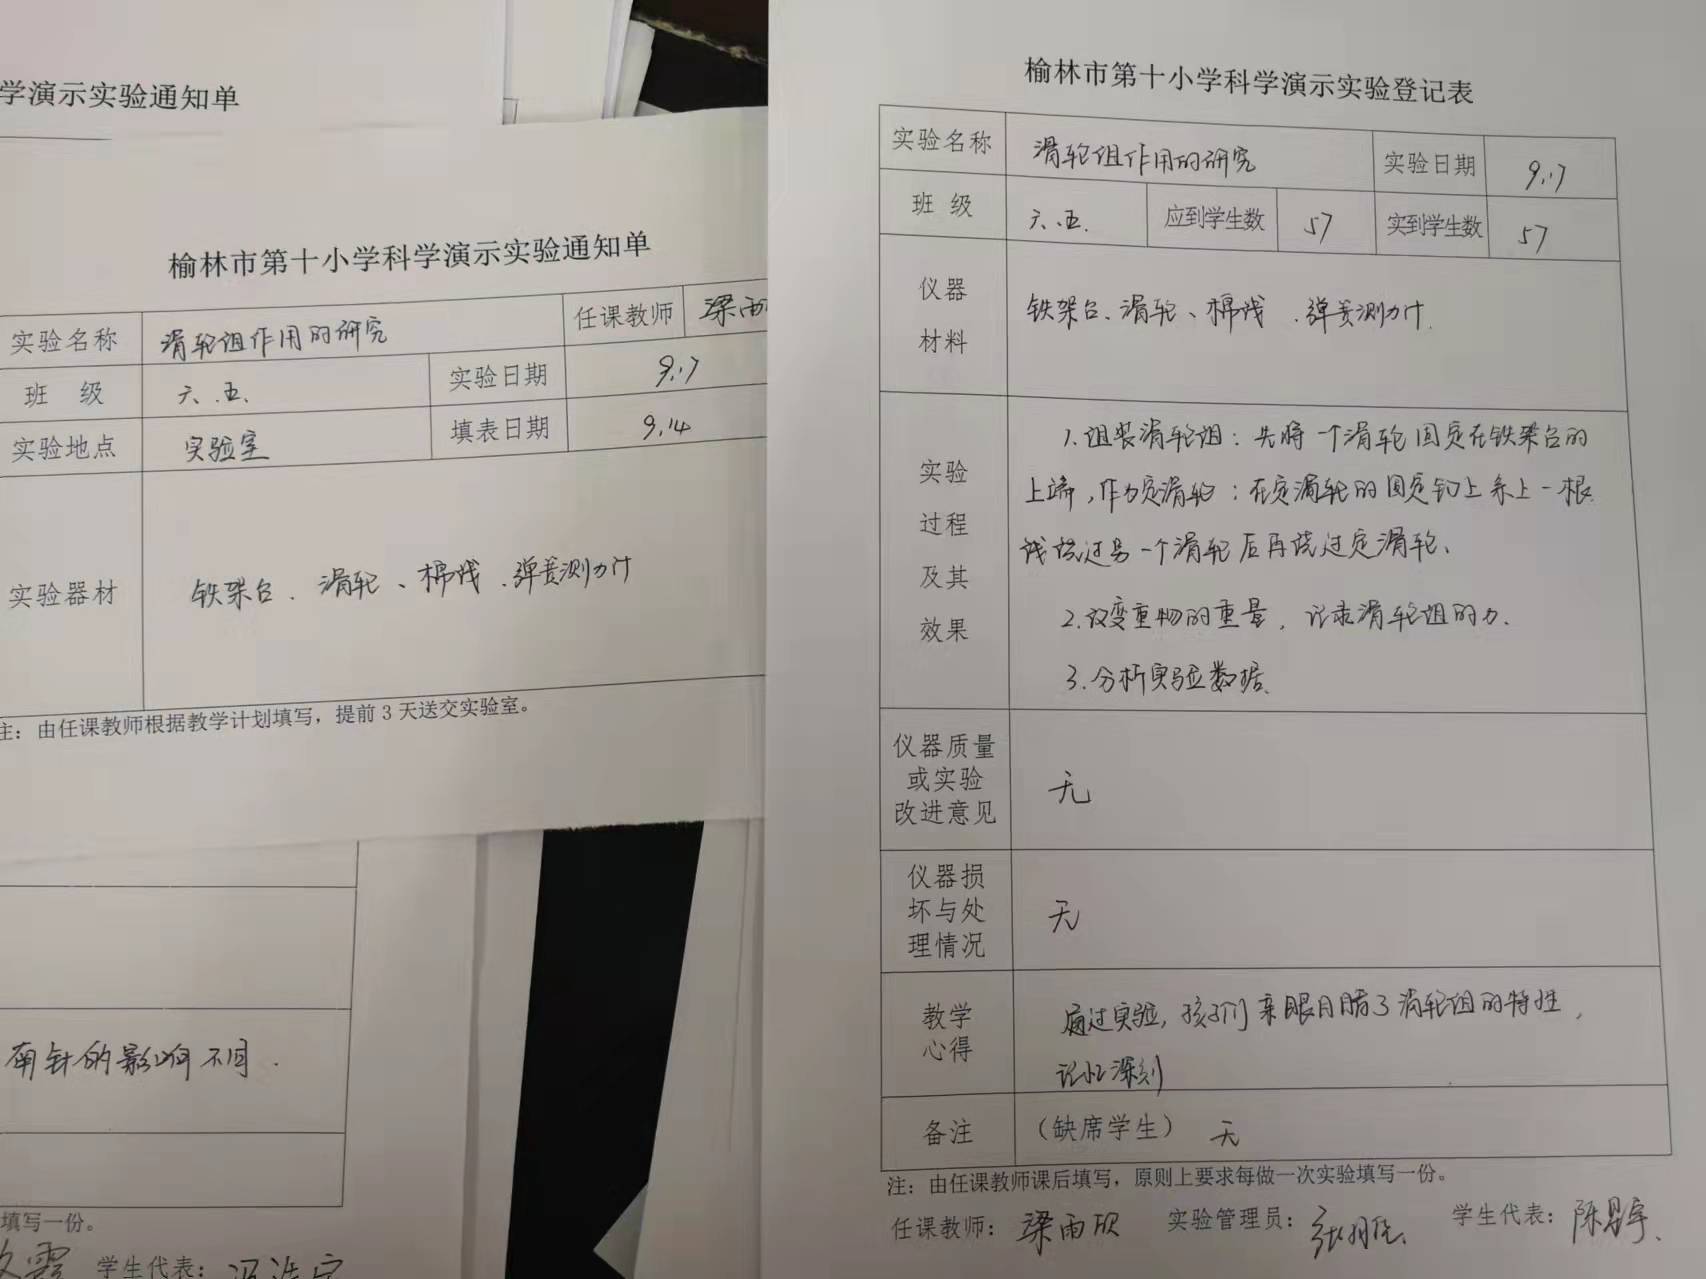 学演示实验通知单
榆林市第十小学科学演示实验通知单
实验名称 滑轮组作用的研究 任课教师 梁雨
班 级 六.五. 实验日期 9.17
实验地点 实验室 填表日期 9.14
实验器材 铁架台、滑轮、棉线、弹簧测力计
注：由任课教师根据教学计划填写，提前 3 天送交实验室。
南针的影响不同.
填写一份。
学生代表：
榆林市第十小学科学演示实验登记表
实验名称 滑轮组作用的研究 实验日期 9.17
班 级 六.五. 应到学生数 57 实到学生数 57
仪器
材料
铁架台、滑轮、棉线、弹簧测力计.
实验
过程
及其
效果
1.组装滑轮组：先将一个滑轮固定在铁架台的
上端，作为定滑轮；在定滑轮的固定钩上系上一根
线绕过另一个滑轮后再绕过定滑轮、
2.改变重物的重量，记录滑轮组的力.
3.分析实验数据.
仪器质量
或实验
改进意见
无
仪器损
坏与处
理情况
无
教学
心得
通过实验，孩子们亲眼目睹了滑轮组的特性，
记忆深刻
备注 （缺席学生） 无
注：由任课教师课后填写，原则上要求每做一次实验填写一份。
任课教师：梁雨欣 实验管理员： 学生代表：陈昱宇